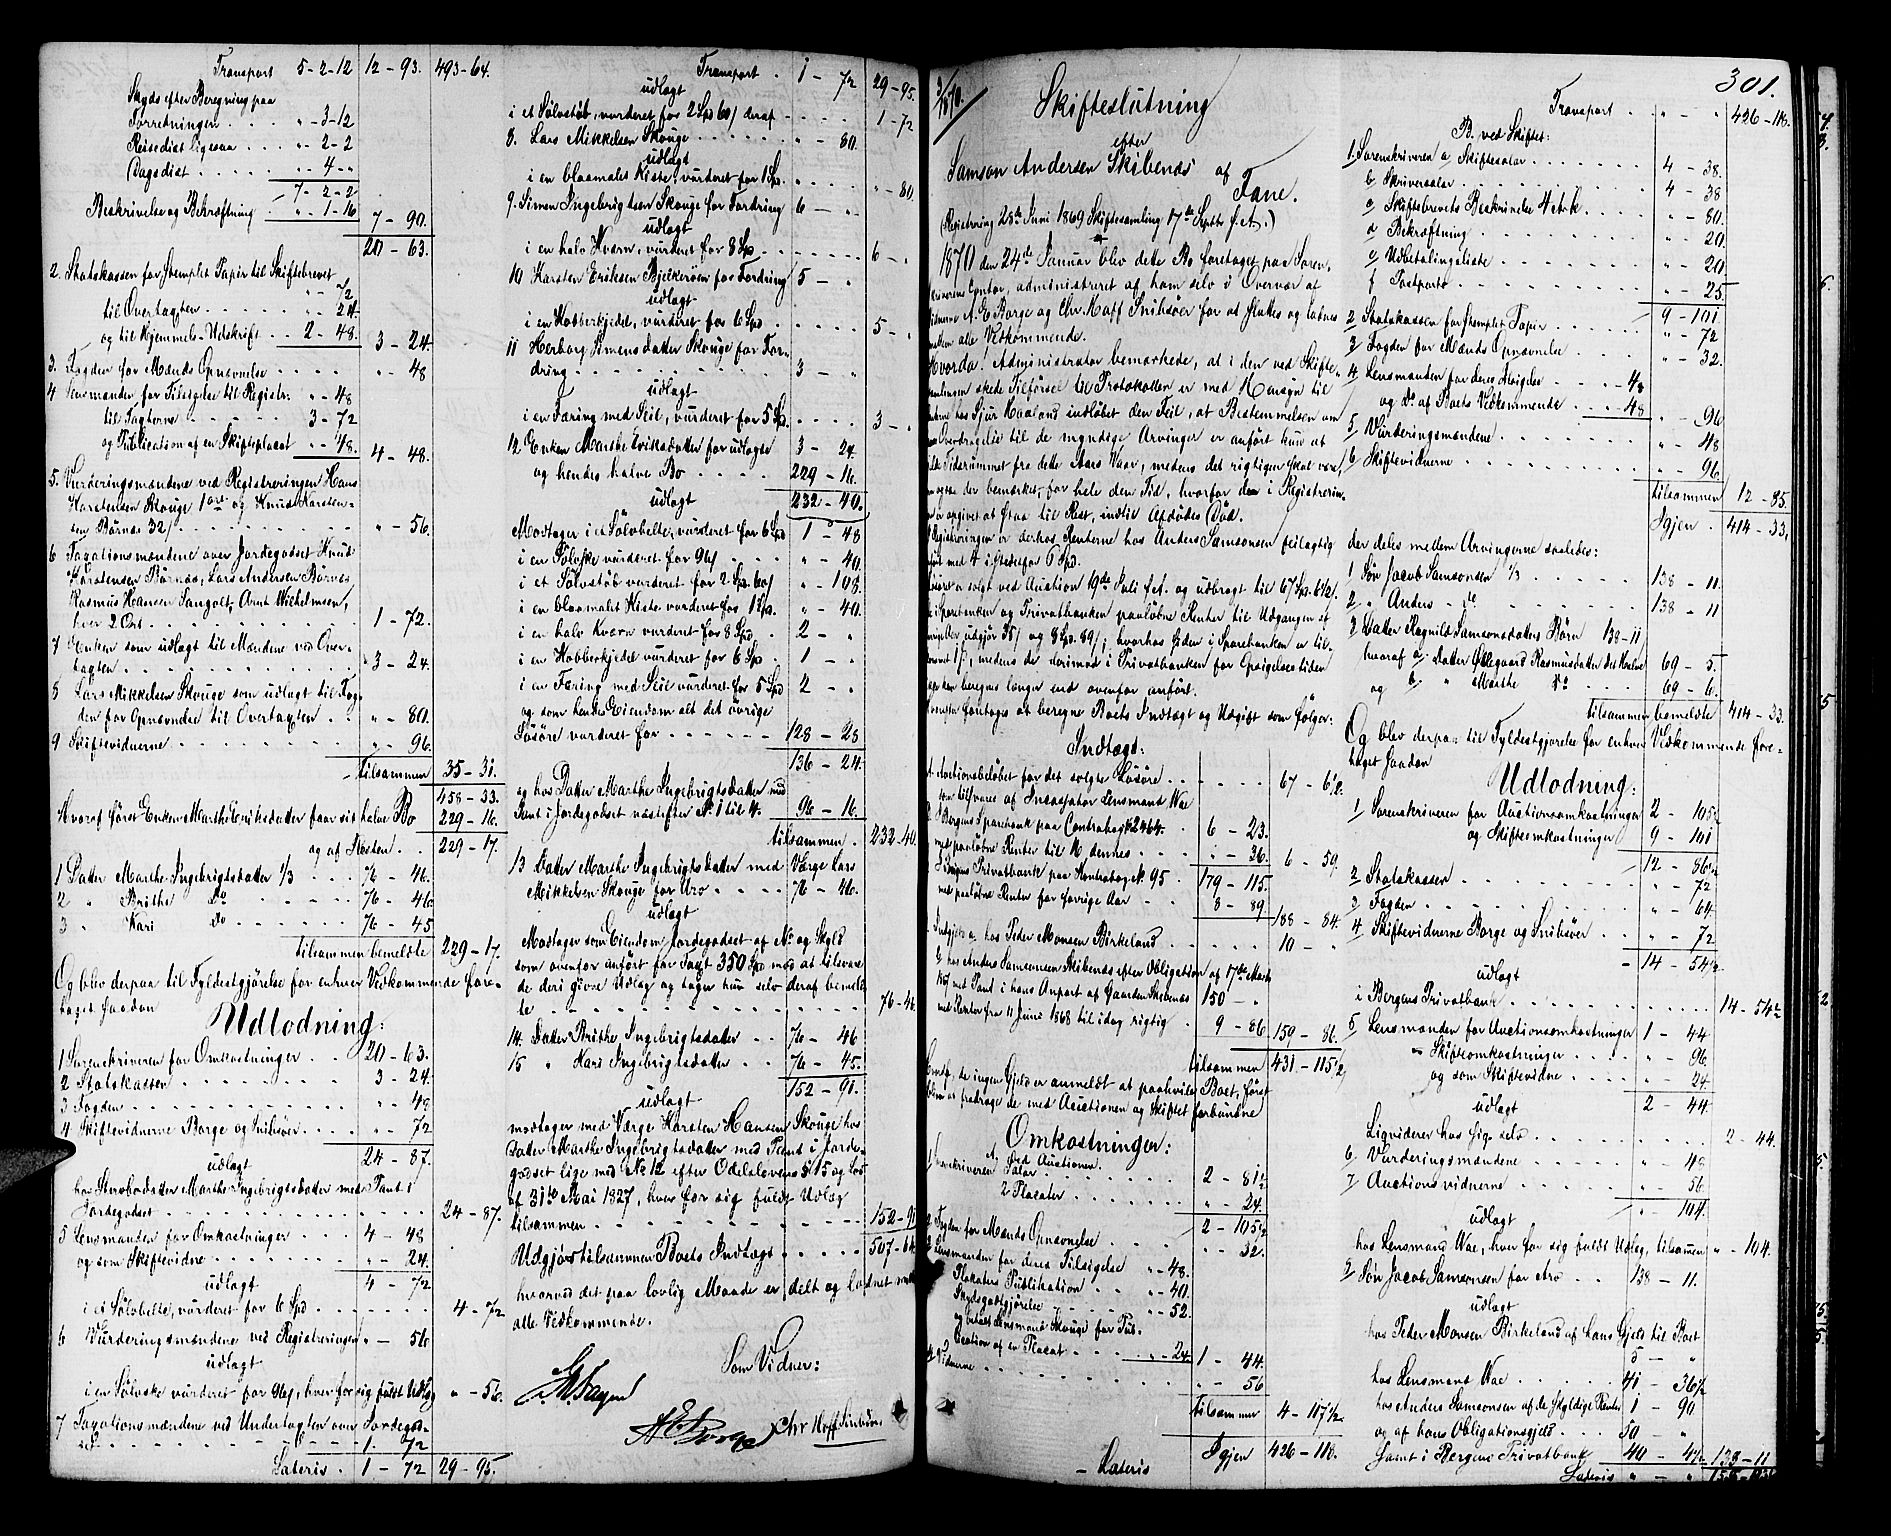 Transport 5-2-12 12-93. 493-64.
Skyds efter Beregning paa
Forretningen . . . . " -3-12
Reisediæt ligesaa . . " -2-2
Dagsdiæt . . . . . " -4- "
7-2-2
Beskrivelse og Bekræftning . " -1-16 7-90.
20-63.
2. Statskassen for stemplet Papir til Skiftebrevet
" -72
til Overtaxten . . . . . . 24.
og til Hjemmels-Udskrift . . 2-48. 3-24.
3. Fogden for Mænds Opnævnelse . . . . " -48
4 Lensmanden for Tilsigelse til Registr: " -48
til Taxterne . . . . . 3-72
og Publication af en Skifteplacat . . " -48. 4-48.
5. Vurderingsmændene ved Registreringen Hans
Karstensen Skouge 1 ort og Knud Karsten-
sen Børnæs 32/ . . . . . . . . " -56.
6 Taxationsmændene over Jordegodset Knud
Karstensen Børnæs, Lars Andersen Børnæs
Rasmus Hansen Sangolt, Arnt Wilhelmsen,
hver 2 Ort . . . . . . . . . 1-72.
7 Enken som udlagt til Mændene ved Over-
taxten . . . . . . . . . . 3-24.
8 Lars Mikkelsen Skouge som udlagt til Fog-
den for Opnævnelse til Overtaxten . . " -80.
9 Skiftevidnerne . . . . . . . " -96.
tilsammen 35-31.
458-33.
Hvoraf først Enken Marthe Eriksdatter faar sit halve Bo 229-16.
og af Resten . 229-17.
1 Datter Marthe Ingebrigtsdatter 1/3 . . . 76-46.
2 " Brithe Do . . . . . 76-46
3 " Kari Do . . . . . 76-45
tilsammen bemeldte 229-17.
Og blev derpaa til Fyldestgjørelse for enhver Vedkommende fore-
taget saadan
Udlodning:
1 Sorenskriveren for Omkostninger . . 20-63.
2 Statskassen . . . . . . . . 3-24.
3 Fogden . . . . . . . . . . " -48
4 Skiftevidnerne Borge og Smihsøer . . . " -72
24-87.
udlagt
hos Steroboedatter Marthe Ingebrigtsdatter med Pant i
Jordegodset . . . . . . . . . . 24-87.
5 Lensmanden for Omkostninger . . . 4-48
og som Skiftevidne . . . . . . " -24.
4-72
udlagt
i et Sølvbelte, vurderet for 6 Spd . . . . . 4-72
6 Vurderingsmændene ved Registreringen " -56
udlagt
i en Sølvske vurderet for 96/, hver for sig fuldt Udlæg " -56.
7 Taxationsmændene ved Undertaxten over Jordegod-
set . . . . . . . . 1-72
Lateris . 1-72 29-95.
Transport . 1-72 29-95.
udlagt
i et Sølvstøb, vurderet for 2 Spd 60/ deraf . . . . 1-72
8. Lars Mikkelsen Skouge . . . . . . " -80.
udlagt
i en blaamalet Kiste, vurderet for 1 Sp. . . . . " -80
9. Simen Ingebrigtsen Skouge for Fordring 6- "
udlagt
i en halv Kværn, vurderet for 8 Spd . . . . . 6- "
10 Karsten Eriksen Bjelkerøen for Fordring 5- "
udlagt
i en Kobberkjedel, vurderet for 6 Spd . . . . . 5- "
11 Herborg Simensdatter Skouge for For-
dring . . . . . . . . . . 3- "
udlagt
i en Færing med Seil, vurderet for 5 Spd. . . . 3- "
12 Enken Marthe Eriksdatter for udlagte 3-24
og hendes halve Bo . . . . 229-16.
232-40.
udlagt
Modtager i et Sølvbelte, vurderet for 6 Spd 1-48
i en Sølvske vurderet for 96/ . . . . " -40
i et Sølvstøb vurderet for 2 Spd 60/ " -108
i en blaamalet Kiste vurderet for 1 Spd. " -40.
i en halv Kværn vurderet for 8 Spd. . 2- "
i en Kobberkjedel vurderet for 6 Spd . 1- "
i en Færing med Seil vurderet for 5 Spd 2- "
og som hendes Eiendom alt det øvrige
Løsøre vurderet for . . . . . . 128-28
136-24.
og hos Datter Marthe Ingebrigtsdatter med
Pant i Jordegodset næstefter No 1 til 4. 96-16.
tilsammen . 232-40
13 Datter Marthe Ingebrigtsdatter med Værge Lars
Mikkelsen Skouge for Arv . . . . 76-46.
udlagt
Modtager som Eiendom Jordegodset af No og Skyld
som ovenfor anført for Taxt 350 Spd mod at tilsvare
de deri givne Udlæg og tager hun selv deraf bemeld-
te . . . . . . . . . . . . 76-46
14. Datter Brithe Ingebrigtsdatter . . 76-46
15 " Kari Ingebrigtsdatter . . 76-45.
152-91.
udlagt
modtager med Værge Karsten Hansen Skouge hos
Datter Marthe Ingebrigtsdatter med Pant i Jorde-
godset lige med No 12 efter Odelslovens § 15 og Lov
af 31te Mai 1827, hver for sig fuldt Udlæg
tilsammen . . . . . . . . . . . 152-91
Udgjør tilsammen Boets Indtægt . . . . . 507-64
hvorved det paa lovlig Maade er delt og lodnet mel-
alle Vedkommende.
Som Vidner:
A E Borge Chr Hoff Smihsøer
301.
2/1870. Skifteslutning
efter
Samson Andersen Skibenæs af
Fane.
(Registrering 25de Juni 1869 Skiftesamling 17de Septbr f. A.)
1870 den 24de Januar blev dette Bo foretaget paa Soren-
skriverens Contor, administreret af ham selv i Overvær af
Vidnerne A. E Borge og Chr. Hoff Smihsøer for at sluttes og lodnes
mellem alle Vedkommende.
Hvorda! Administrator bemærkede, at i den ved Skifte-
samlingen skede Tilførsel til Protokollen er med Hensyn til
hos Sjur Haaland indløbet den Feil, at Bestemmelsen om
Overdragelse til de myndige Arvinger er anført kun at
Tidsrummet fra dette Aars Vaar, medens det rigtigen skal være,
der bemærket, for hele den Tid, hvorfor den i Registrerin-
opgivet at staa til Rest, indtil Afdødes Død.
Registreringen er derhos Renterne hos Anders Samsonsen feilagtig
med 4 istedetfor 6 Spd.
solgt ved Auction 19de Juli f.A. og udbragt til 67 Sp. 6 1/2/.
i Sparebanken og Privatbanken paaløbne Renter til Udgangen af
udgjør 35/ og 8 Spd. 89/; hvorhos Siden i Sparebanken er til-
17/, medens de derimod i Privatbanken for Opsigelsestiden
beregnes længer end ovenfor anført.
foretages at beregne Boets Indtægt og Udgift som følger:
Indtægt:
Auctionsbeløbet for det solgte Løsøre . . . . . 67-6 1/2.
som tilsvares af Incassator Lensmand Wae
Bergens Sparebank paa Contrabog No 2464. 6-23.
med paaløbne Renter til M dennes . . . . " -36. 6-59.
Bergens Privatbank paa Kontrabog No. 95 . 179-115.
med paaløbne Renter for forrige Aar . . 8-89
188-84.
Indgjeld a. hos Peder Monsen Birkeland . . . . . 10- "
b hos Anders Samsonsen Skibenæs efter Obligation af 17de Marts
med Pant i hans Anpart af Gaarden Skibenæs 150- "
med Renter fra 11 Juni 1868 til idag rigtig . 9-86 159-86.
tilsammen 431-115 1/2
da ingen Gjeld er anmeldt at paahvile Boet, først
at fradrage de med Auctionen og Skiftet forbundne
Omkostninger:
A, ved Auctionen.
1 Sorenskriveren Salær . . . . . 2-81 1/2
2 Placater . . . . . . . " -24.
2-105 1/2
2 Fogden for Mænds Opnævnelse . . . . " -32.
3 Lensmanden for deres Tilsigelse " -48.
Placaters Publikation . . " -40.
Skydsgodtgjørelse . . . . " -52.
og betalt Lensmand Skouge for Pub-
lication af en Placat . . . . " -24 1-44.
4 Vidnerne . . . . . . . . " -56
tilsammen 4-117 1/2
Lateris Igjen 426-118.
Transport . . . " - " 426-118.
B. ved Skiftet:
1. Sorenskriveren a Skiftesalær . . . . . 4-38.
b Skriversalær . . . . . . . 4-38
c Skiftebrevets Beskrivelse 4 Ark . . " -80.
d Bekræftning . . . . . . . " -20.
e Udbetalingsliste . . . . . . " -20
f Postporto . . . . . . . . " -25.
9-101
2 Statskassen for stemplet Papir . . . . " -72
3 Fogden for Mænds Opnævnelse . . . . " -32.
4 Lensmanden for deres Tilsigelse . . . " -48
og Do af Boets Vedkommende . . . . -48 " -96
5 Vurderingsmændene . . . . . . . " -48
6 Skiftevidnerne . . . . . . . . " -96.
tilsammen 12-85.
Igjen . 414-33.
der deles mellem Arvingerne saaledes:
1 Søn Jacob Samsonsen 1/3 . . . . 138-11.
2 " Anders - do . . . . . 138-11
3 Datter Ragnild Samsonsdatters Børn 138-11
hvoraf a, Datter Øllegaard Rasmusdatter det Halve 69-5.
og b, " Marthe Do . . . . 69-6.
tilsammen bemeldte 414-33.
Og blev derpaa til Fyldestgjørelse for enhver Vedkommende fore-
taget saadan
Udlodning:
1 Sorenskriveren for Auctionsomkostninger 2-105 1/2
og Skifteomkostninger 9-101
12-86 1/2
2 Statskassen . . . . . . . . . " -72
3 Fogden . . . . . . . . . . . " -64
4 Skiftevidnerne Borge og Smihsøer . . . " -72
14-54 1/2
udlagt
i Bergens Privatbank . . . . . . . . . . 14-54 1/2
5 Lensmanden for Auctionsomkostninger 1-44
" Skifteomkostninger . . . . . " -96
og som Skiftevidne . . . . . . " -24
2-44
udlagt
Liqviderer hos sig selv . . . . . . . . 2-44.
6 Vurderingsmændene . . . . . . . " -48
7 Auctionsvidnerne . . . . . . . " -56
" -104.
udlagt
hos Lensmand Wae, hver for sig fuldt Udlæg, tilsamen " -104.
8 Søn Jacob Samsonsen for Arv . . 138-11.
udlagt
hos Peder Monsen Birkeland af hans Gjeld til Boet
5- "
hos Lensmand Wae . . . . . . . 41-36 1/2
hos Anders Samsonsen af de skyldige Renter 1-90
og af hans Obligationsgjeld . . 50- "
samt i Bergens Privatbank . . 40-4 1/2 138-11
Lateris " - "